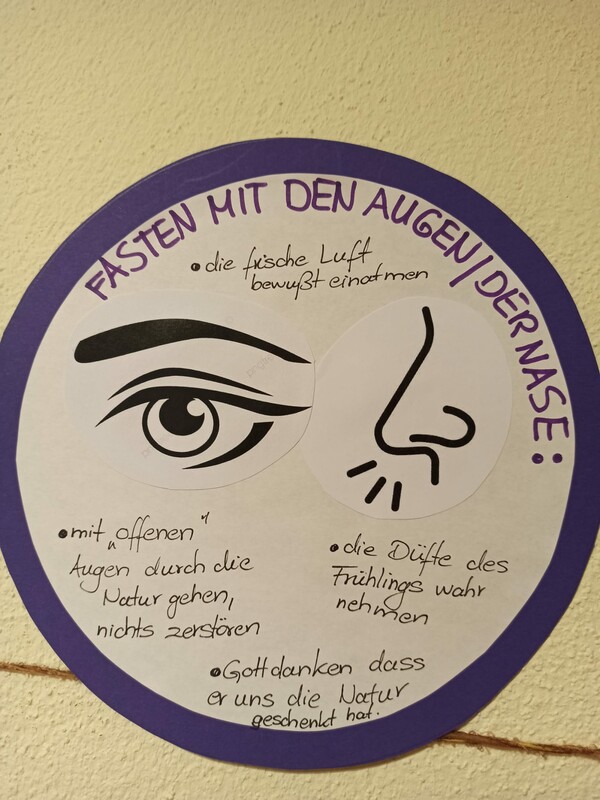 FASTEN MIT DEN AUGEN/DER NASE:
• die frische Luft
bewußt einatmen
• mit „offenen“
Augen durch die
Natur gehen,
nichts zerstören
• die Düfte des
Frühlings wahr
nehmen
• Gott danken dass
er uns die Natur
geschenkt hat.